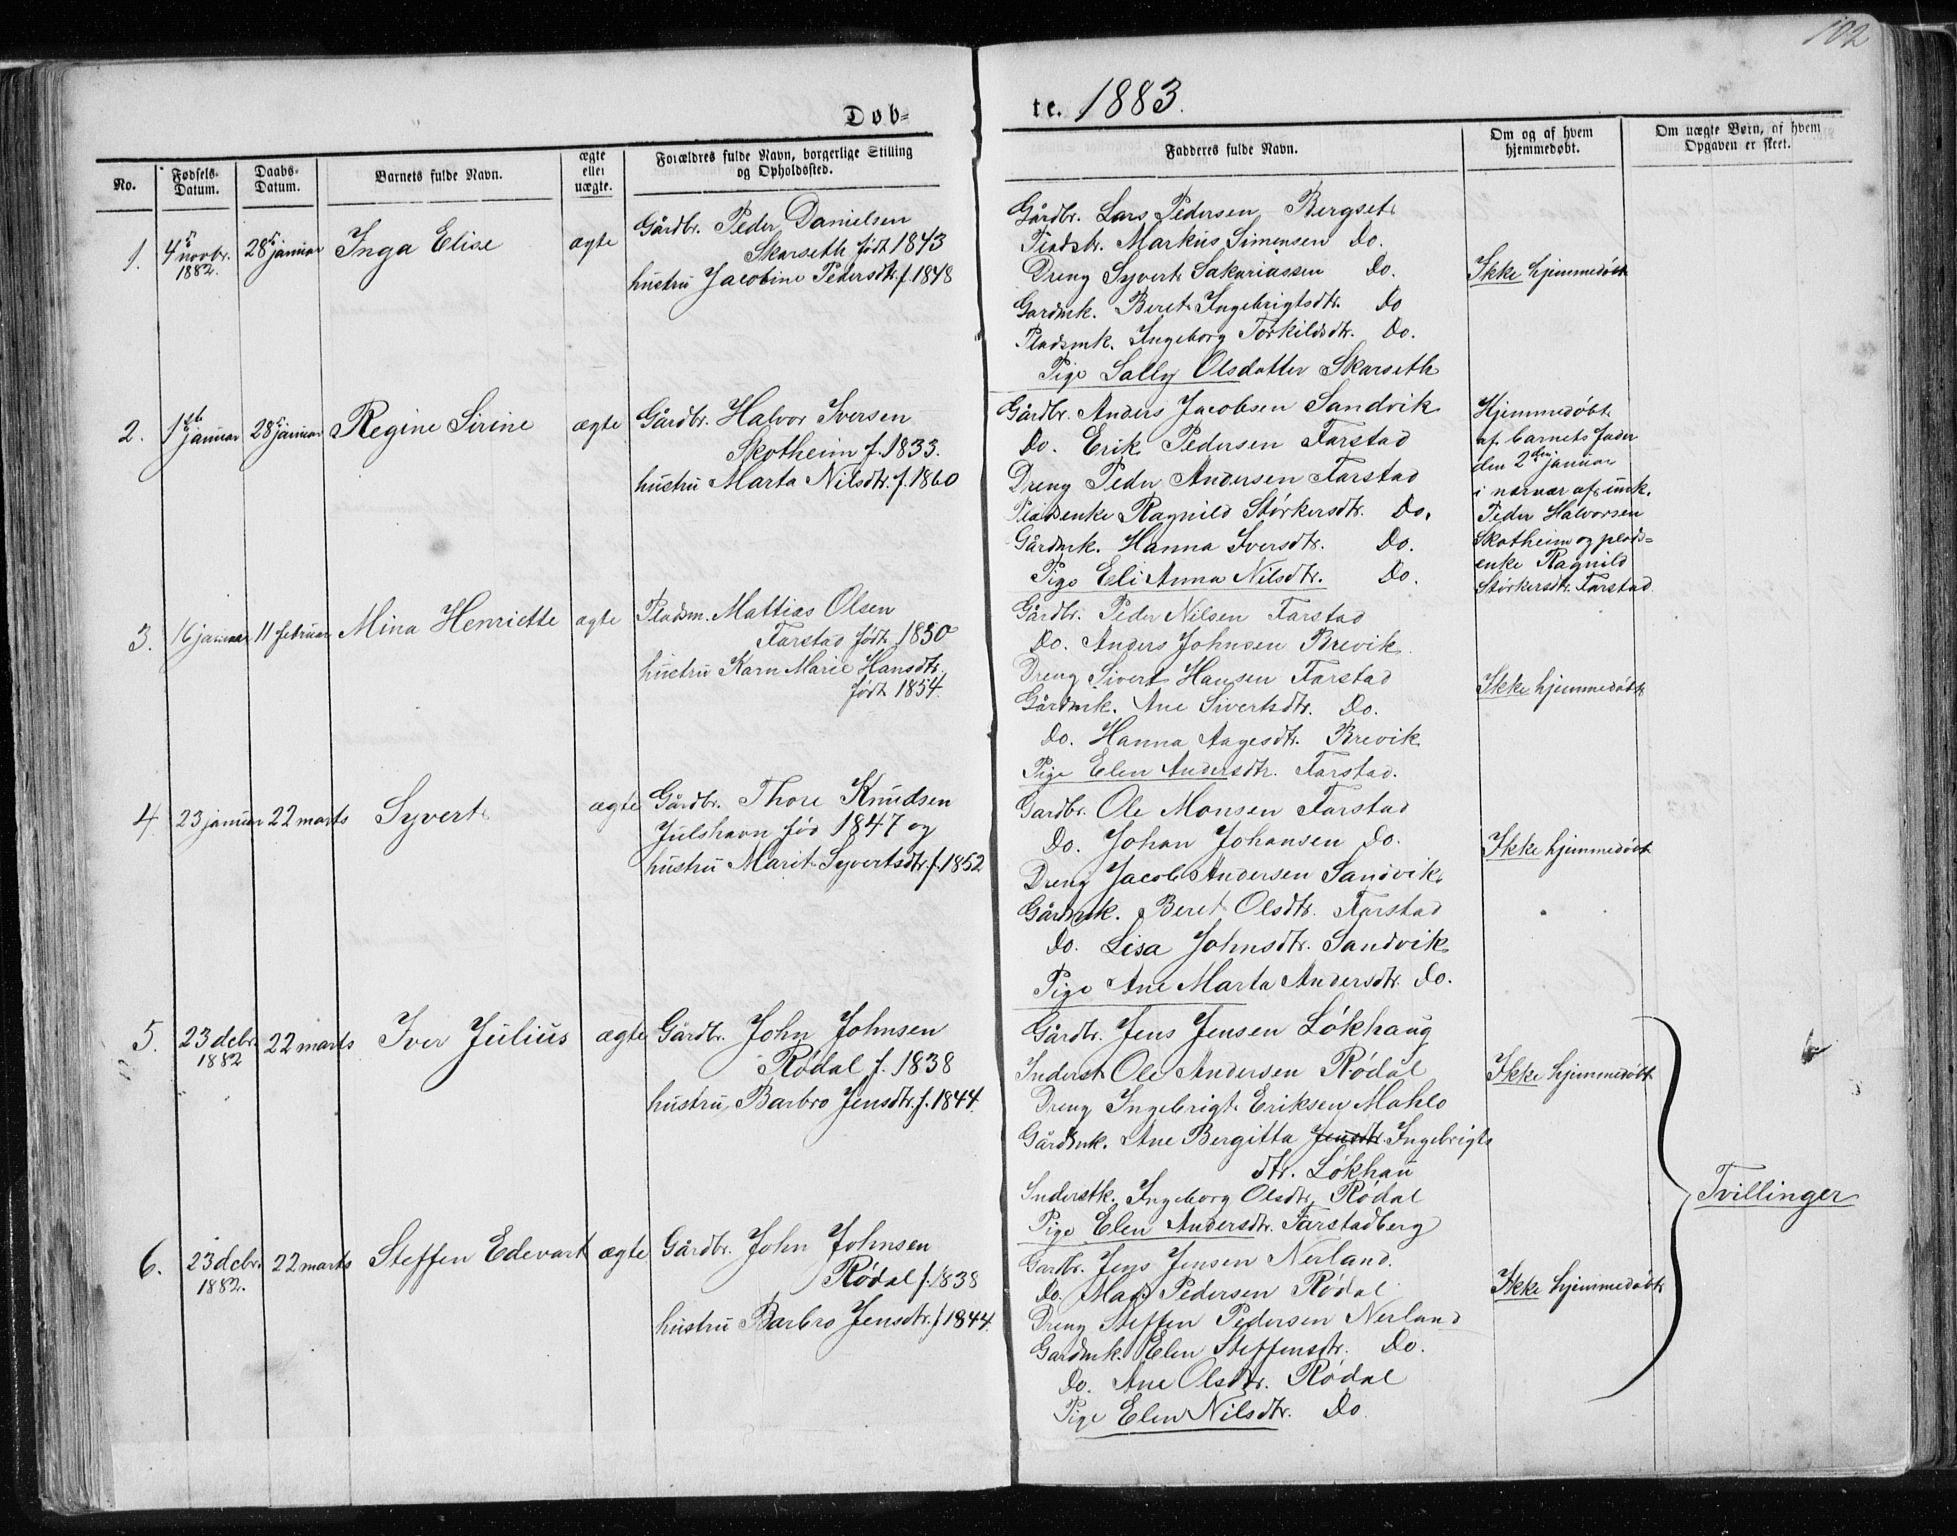 102
Døb-
te. 1883.
No.
Fødsels-
Datum.
Daabs-
Datum.
Barnets fulde Navn.
ægte
eller
uægte.
Forældres fulde Navn, borgerlige Stilling
og Opholdssted.
Faddernes fulde Navn.
Om og af hvem
hjemmedøbt.
Om uægte Børn, af hvem
Opgaven er skeet.
1.
4de novbr.
1882.
28de januar
Inga Elise
ægte
Gårdbr. Peder Danielsen
Skarseth født 1843
hustru Jacobine Pedersdtr. f. 1848
Gårdbr. Lars Pedersen Bergset
Pladsbr. Markus Simensen Do.
Dreng Syvert Sakariassen Do.
Gardmk. Beret Ingebrigtsdtr. Do
Pladsmk. Ingeborg Torkildsdtr. Do.
Pige Sally Olsdatter Skarseth
Ikke hjemmedøbt
2.
1ste januar
28de januar
Regine Sirine
ægte
Gårdbr. Halvor Iversen
Skotheim f. 1833.
hustru Marta Nilsdtr. f. 1860
Gårdbr. Anders Jacobsen Sandvik
Do. Erik Pedersen Farstad
Dreng Peder Andersen Farstad
Pladsenke Ragnild Størkersdtr. Do.
Gårdmk. Hanna Iversdtr. Do.
Pige Eli Anna Nilsdtr. Do.
Hjemmedøbt
af barnets fader
den 2den januar
i nærvær af unk.
Peder Halvorsen
Skotheim og plads-
enke Ragnild
Størkersdtr. Farstad.
3.
16 januar
11 februar
Mina Henriette
ægte
Pladsm. Mattias Olsen
Farstad født 1850
hustru Karn Marie Hansdtr.
født 1854.
Gårdbr. Peder Nilsen Farstad
Do. Anders Johnsen Brevik
Dreng Sivert Hansen Farstad
Gårdmk. Ane Sivertsdtr. Do.
Do. Hanna Aagesdtr. Brevik
Pige Elen Andersdtr. Farstad.
Ikke hjemmedøbt
4
23 januar
22 marts
Syvert
ægte
Gårdbr. Thore Knudsen
Julshavn fød 1847 og
hustru Marit Syvertsdtr. f. 1852
Gardbr. Ole Monsen Farstad
Do. Johan Johansen Do.
Dreng Jacob Andersen Sandvik
Gårdmk. Beret Olsdtr. Farstad
Do. Lisa Johnsdtr. Sandvik
Pige Ane Marta Andersdtr. Do.
Ikke hjemmedøbt
5.
23 debr.
1882
22 marts
Iver Julius
ægte
Gårdbr. John Johnsen
Rødal f. 1838
hustru Barbro Jensdtr. f. 1844.
Gårdbr. Jens Jensen Løkhaug
Inderst Ole Andersen Rødal
Dreng Ingebrigt Eriksen Mahlo
Gårdmk. Ane Bergitta Jensdtr. Ingebrigts
dtr. Løkhau
Inderstk. Ingeborg Olsdtr. Rødal
Pige Elen Andersdtr. Farstadberg
Ikke hjemmedøbt
Tvillinger
6.
23 debr.
1882.
22 marts
Steffen Edevart
ægte
Gårdbr. John Johnsen
Rødal f. 1838
hustru Barbro Jensdtr. f. 1844.
Gardbr. Jens Jensen Nerland.
Do. Mads Pedersen Rødal
Dreng Steffen Pedersen Nerland
Gardmk. Elen Steffensdtr. Do.
Do. Ane Olsdtr. Rødal
Pige Elen Nilsdtr. Do.
Ikke hjemmedøbt